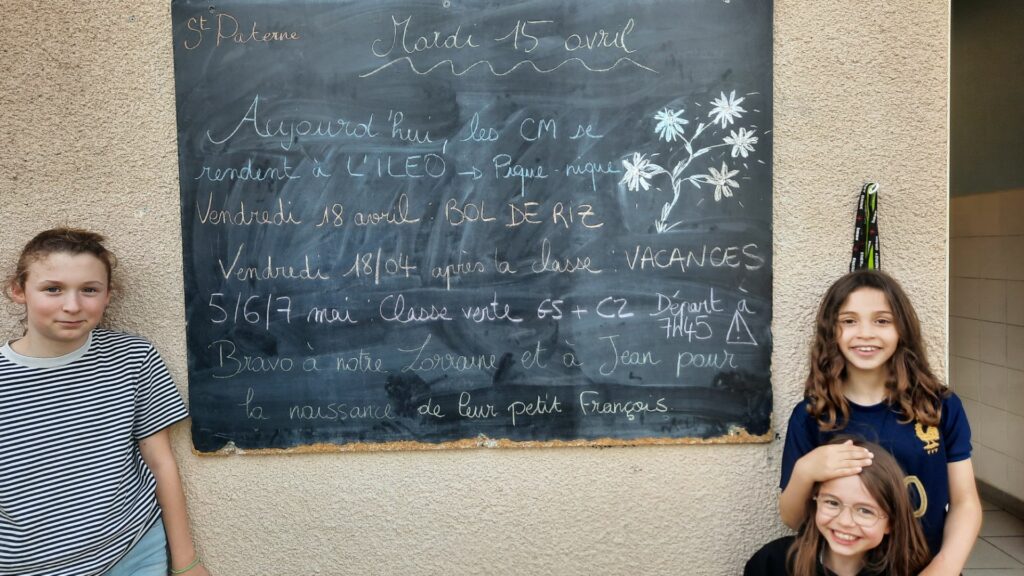 St Paterne
Mardi 15 avril
Aujourd'hui, les CM se
rendent à L'ILEO → Pique-nique
Vendredi 18 avril : BOL DE RIZ
Vendredi 18/04 après la classe : VACANCES
5/6/7 mai : Classe verte GS + C2 Départ à
7H45
Bravo à notre Lorraine et à Jean pour
la naissance de leur petit François.